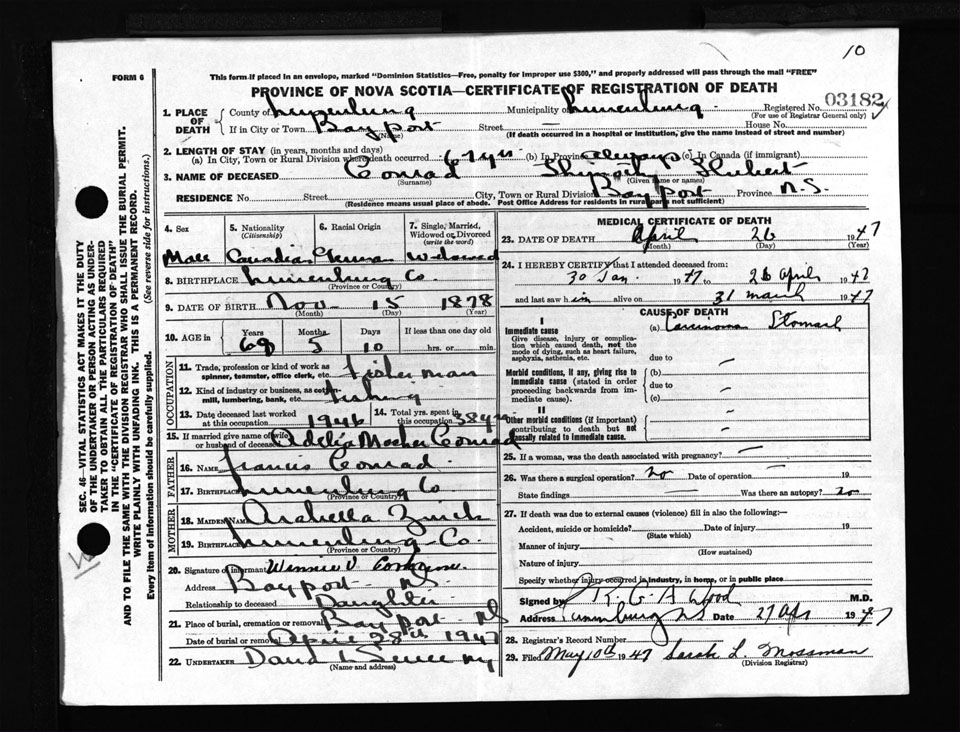 10
FORM 6
This form if placed in an envelope, marked "Dominion Statistics—Free, penalty for improper use $300," and properly addressed will pass through the mail "FREE"
PROVINCE OF NOVA SCOTIA—CERTIFICATE OF REGISTRATION OF DEATH
03182
1. PLACE OF DEATH County of Lunenburg Municipality of Lunenburg Registered No. (For use of Registrar General only)
If in City or Town Bayport (Name) Street House No.
(If death occurred in a hospital or institution, give the name instead of street and number)
2. LENGTH OF STAY (in years, months and days)
(a) In City, Town or Rural Division where death occurred 67 yrs (b) In Province always (c) In Canada (if immigrant)
3. NAME OF DECEASED Conrad (Surname) Hubert (Given name or names)
RESIDENCE No. Street City, Town or Rural Division Bayport Province N.S.
(Residence means usual place of abode. Post Office Address for residents in rural parts not sufficient)
4. Sex 5. Nationality (Citizenship) 6. Racial Origin 7. Single, Married, Widowed or Divorced (write the word)
Male Canadian German Widowed
8. BIRTHPLACE Lunenburg Co
(Province or Country)
9. DATE OF BIRTH Nov 15 1878
(Month) (Day) (Year)
10. AGE in Years Months Days If less than one day old
68 5 10 hrs. or min.
OCCUPATION
11. Trade, profession or kind of work as spinner, teamster, office clerk, etc. Fisherman
12. Kind of industry or business, as cotton-mill, lumbering, bank, etc. Fishing
13. Date deceased last worked at this occupation 1946 14. Total yrs. spent in this occupation 38 yrs
15. If married give name of wife or husband of deceased Adelia Mosher Conrad
FATHER
16. NAME Francis Conrad
17. BIRTHPLACE Lunenburg Co
(Province or Country)
MOTHER
18. MAIDEN NAME Arabella Zinck
19. BIRTHPLACE Lunenburg Co.
(Province or Country)
20. Signature of informant Winnie V
Address Bayport NS
Relationship to deceased Daughter
21. Place of burial, cremation or removal Bayport NS
Date of burial or removal April 28th 1947
22. UNDERTAKER
(Name and address)
MEDICAL CERTIFICATE OF DEATH
23. DATE OF DEATH April 26 1947
(Month) (Day) (Year)
24. I HEREBY CERTIFY that I attended deceased from:
30 Jan. 1947 to 26 April 1947
and last saw him alive on 31 March 1947
CAUSE OF DEATH
I
Immediate cause (a) Carcinoma Stomach
Give disease, injury or complication which caused death, not the mode of dying, such as heart failure, asphyxia, asthenia, etc. due to —
Morbid conditions, if any, giving rise to immediate cause (stated in order proceeding backwards from immediate cause). (b) — due to — (c)
II
Other morbid conditions (if important) contributing to death but not causally related to immediate cause. —
25. If a woman, was the death associated with pregnancy? —
26. Was there a surgical operation? no Date of operation 19
State findings Was there an autopsy? no
27. If death was due to external causes (violence) fill in also the following:—
Accident, suicide or homicide? Date of injury 19
(State which)
Manner of injury
(How sustained)
Nature of injury
Specify whether injury occurred in industry, in home, or in public place
Signed by R. G. A. Wood M.D.
Address Lunenburg NS Date 27 Apr 1947
28. Registrar's Record Number
29. Filed May 10th 1947 Sarah L. Mossman
(Division Registrar)
SEC. 46—VITAL STATISTICS ACT MAKES IT THE DUTY
OF THE UNDERTAKER OR PERSON ACTING AS UNDER-
TAKER TO OBTAIN ALL THE PARTICULARS REQUIRED
IN THE "CERTIFICATE OF REGISTRATION OF DEATH"
AND TO FILE THE SAME WITH THE DIVISION REGISTRAR WHO SHALL ISSUE THE BURIAL PERMIT.
WRITE PLAINLY WITH UNFADING INK. THIS IS A PERMANENT RECORD.
Every item of information should be carefully supplied. (See reverse side for instructions.)